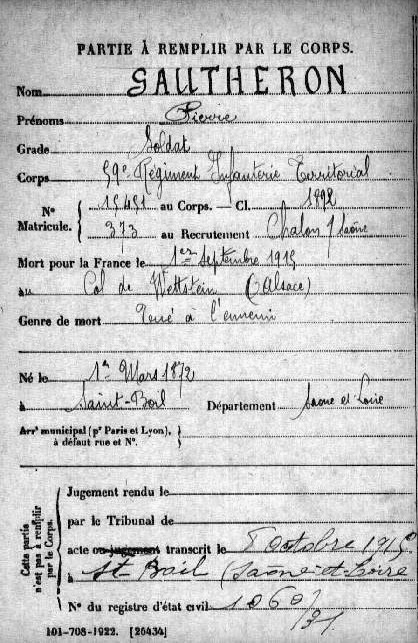 PARTIE À REMPLIR PAR LE CORPS.
Nom GAUTHERON
Prénoms Pierre
Grade Soldat
Corps 59e Régiment Infanterie Territorial
N° Matricule. { 15451 au Corps. — Cl. 1892
373 au Recrutement Chalon s/ Saône
Mort pour la France le 1er Septembre 1915
au Col de Wettstein (Alsace)
Genre de mort Tué à l'ennemi
Né le 1er Mars 1872
à Saint-Boil Département Saone et Loire
Arrt municipal (pr Paris et Lyon), à défaut rue et N°. }
Cette partie n'est pas à remplir par le Corps.
Jugement rendu le
par le Tribunal de
acte ou jugement transcrit le 8 octobre 1915
à St Boil (Saône-et-Loire
N° du registre d'état civil 1060/
101-708-1922. [26434]